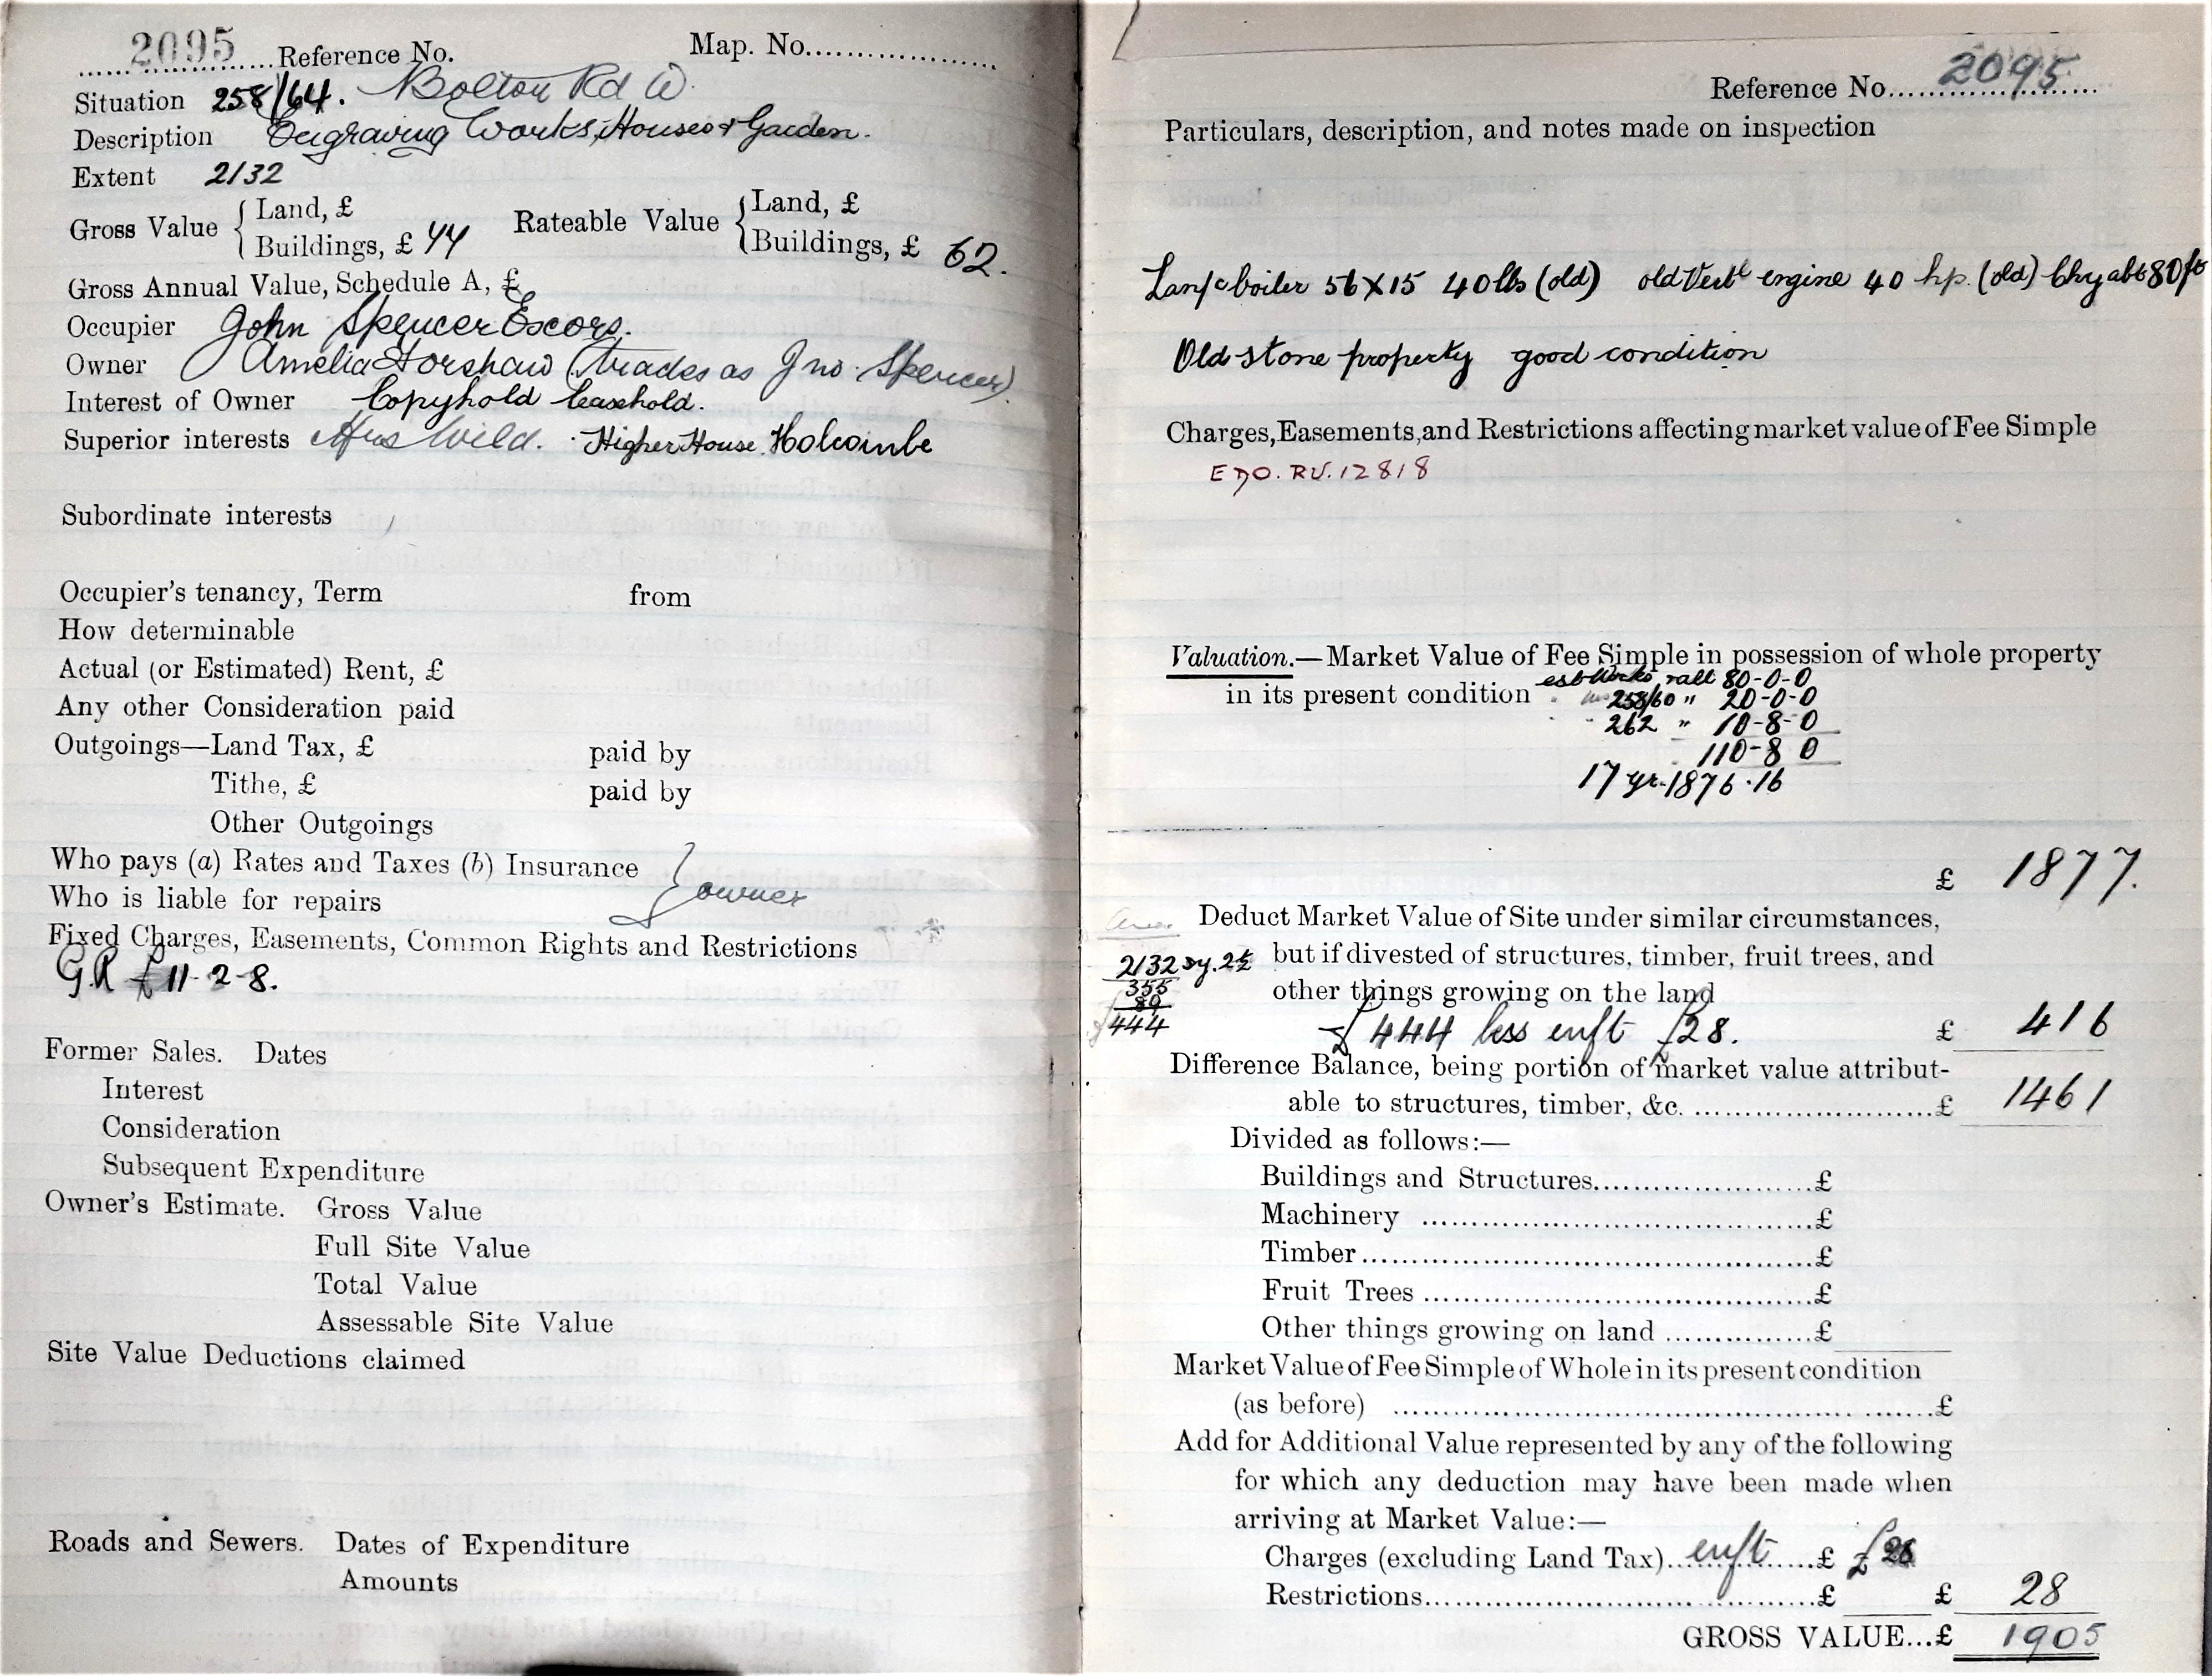 2095 Reference No. Map. No.
Situation 258/64. Bolton Rd W.
Description Engraving Works, Houses & Garden.
Extent 2132
Gross Value { Land, £
Buildings, £ 44
Rateable Value { Land, £
Buildings, £ 62.
Gross Annual Value, Schedule A, £
Occupier John Spencer Exors.
Owner Amelia Horshaw (trades as Jno. Spencer)
Interest of Owner Copyhold leasehold.
Superior interests Mrs Wild. Higher House Holcombe
Subordinate interests
Occupier's tenancy, Term from
How determinable
Actual (or Estimated) Rent, £
Any other Consideration paid
Outgoings—Land Tax, £ paid by
Tithe, £ paid by
Other Outgoings
Who pays (a) Rates and Taxes (b) Insurance
Who is liable for repairs } owner
Fixed Charges, Easements, Common Rights and Restrictions
G.R £11-2-8.
Former Sales. Dates
Interest
Consideration
Subsequent Expenditure
Owner's Estimate. Gross Value
Full Site Value
Total Value
Assessable Site Value
Site Value Deductions claimed
Roads and Sewers. Dates of Expenditure
Amounts
Reference No. 2095
Particulars, description, and notes made on inspection
Lan/c boiler 56 X 15 40 lbs (old) old Vertl engine 40 hp. (old) Chy abt 80 ft
Old stone property good condition
Charges, Easements, and Restrictions affecting market value of Fee Simple
RV. 12818
Valuation.—Market Value of Fee Simple in possession of whole property
in its present condition est Works rall 80-0-0
258/60 " 20-0-0
262 " 10-8-0
110-8 0
17 yr. 1876.16
£ 1877.
Area Deduct Market Value of Site under similar circumstances,
2132 sy. 2½ but if divested of structures, timber, fruit trees, and
355 other things growing on the land
89
£444 £444 less enft £28. £ 416
Difference Balance, being portion of market value attribut-
able to structures, timber, &c. £ 1461
Divided as follows:—
Buildings and Structures £
Machinery £
Timber £
Fruit Trees £
Other things growing on land £
Market Value of Fee Simple of Whole in its present condition
(as before) £
Add for Additional Value represented by any of the following
for which any deduction may have been made when
arriving at Market Value:—
Charges (excluding Land Tax) enft £ £28
Restrictions £ £ 28
GROSS VALUE...£ 1905